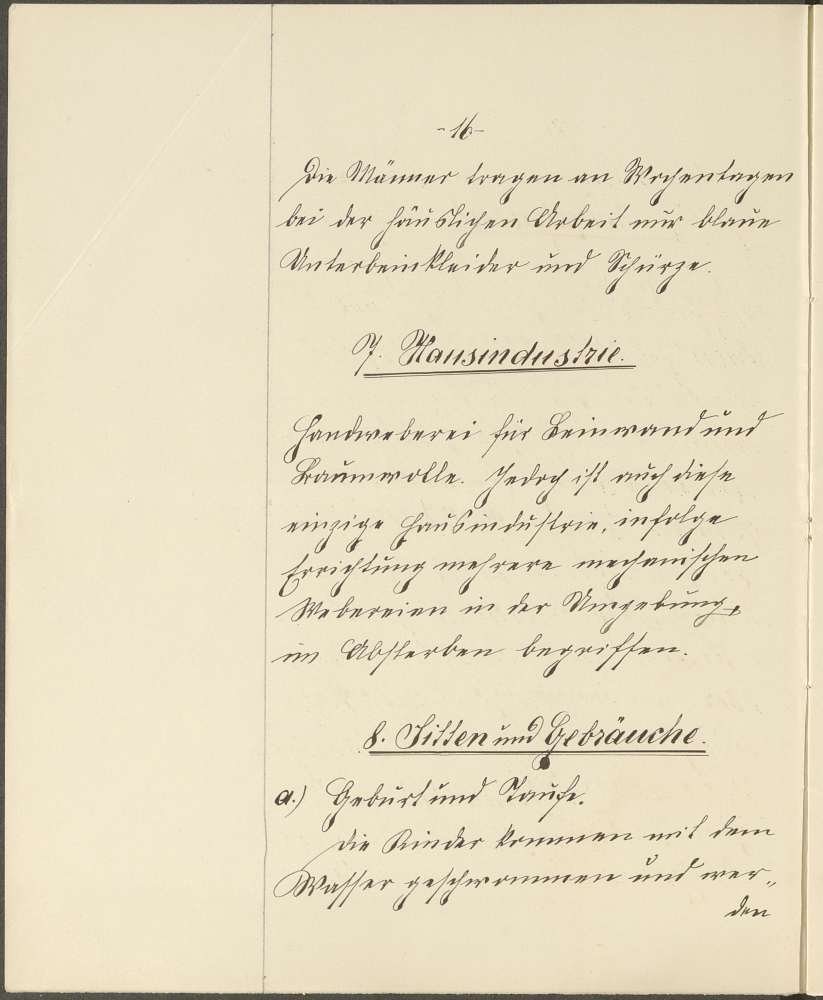 - 16 -
Die Männer tragen an Wochentagen
bei der häuslichen Arbeit nur blaue
Unterbeinkleider und Schürze.
7. Hausindustrie.
Handweberei für Leinwand und
Baumwolle. Jedoch ist auch diese
einzige Hausindustrie, infolge
Errichtung mehrere mechanischen
Webereien in der Umgebung,
im Absterben begriffen.
8. Sitten und Gebräuche.
a.) Geburt und Taufe.
Die Kinder kommen mit dem
Wasser geschwommen und wer„
den